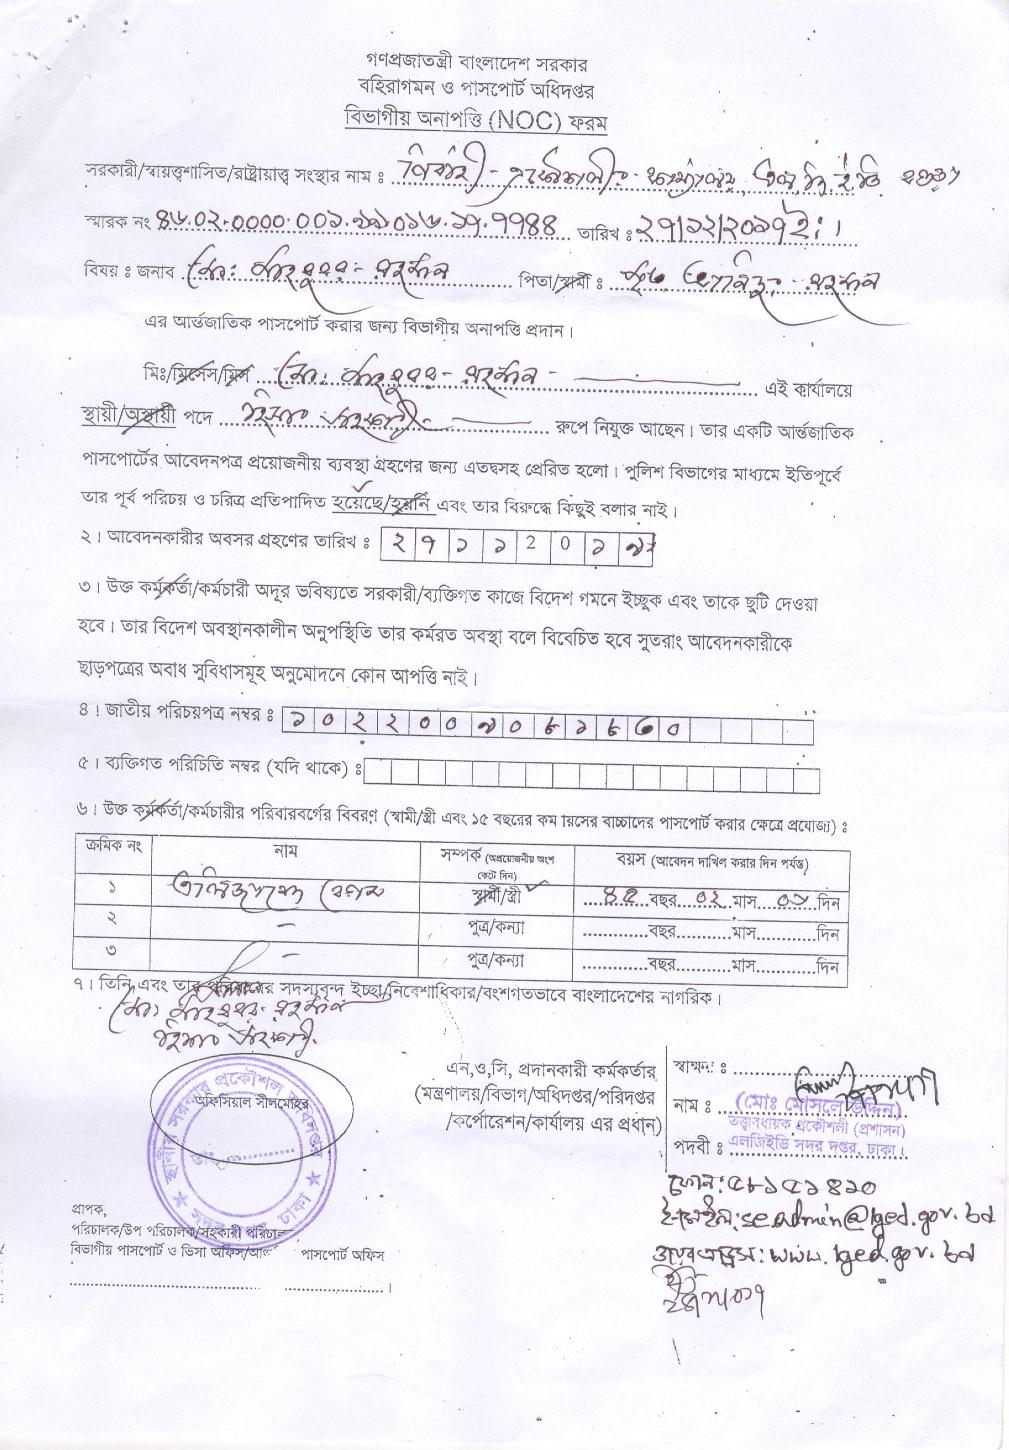 গণপ্রজাতন্ত্রী বাংলাদেশ সরকার
বহিরাগমন ও পাসপোর্ট অধিদপ্তর
বিভাগীয় অনাপত্তি (NOC) ফরম
সরকারী/স্বায়ত্ত্বশাসিত/রাষ্ট্রায়াত্ত্ব সংস্থার নাম : নির্বাহী প্রকৌশলী
স্মারক নং ৪৬.০২.০০০০.০০১. তারিখ :
বিষয় : জনাব মো: মাহবুবুর রহমান পিতা/স্বামী : মৃত রহমান
এর আর্ন্তজাতিক পাসপোর্ট করার জন্য বিভাগীয় অনাপত্তি প্রদান।
মিঃ/মিসেস/মিস মো: মাহবুবুর রহমান এই কার্যালয়ে
স্থায়ী/অস্থায়ী পদে হিসাব সহকারী রুপে নিযুক্ত আছেন। তার একটি আর্ন্তজাতিক
পাসপোর্টের আবেদনপত্র প্রয়োজনীয় ব্যবস্থা গ্রহণের জন্য এতদ্বসহ প্রেরিত হলো। পুলিশ বিভাগের মাধ্যমে ইতিপূর্বে
তার পূর্ব পরিচয় ও চরিত্র প্রতিপাদিত হয়েছে/হয়নি এবং তার বিরুদ্ধে কিছুই বলার নাই।
২। আবেদনকারীর অবসর গ্রহণের তারিখ :
৩। উক্ত কর্মকর্তা/কর্মচারী অদূর ভবিষ্যতে সরকারী/ব্যক্তিগত কাজে বিদেশ গমনে ইচ্ছুক এবং তাকে ছুটি দেওয়া
হবে। তার বিদেশ অবস্থানকালীন অনুপস্থিতি তার কর্মরত অবস্থা বলে বিবেচিত হবে সুতরাং আবেদনকারীকে
ছাড়পত্রের অবাধ সুবিধাসমূহ অনুমোদনে কোন আপত্তি নাই।
৪। জাতীয় পরিচয়পত্র নম্বর :
৫। ব্যক্তিগত পরিচিতি নম্বর (যদি থাকে) :
৬। উক্ত কর্মকর্তা/কর্মচারীর পরিবারবর্গের বিবরণ (স্বামী/স্ত্রী এবং ১৫ বছরের কম বয়সের বাচ্চাদের পাসপোর্ট করার ক্ষেত্রে প্রযোজ্য) :
ক্রমিক নং নাম সম্পর্ক (অপ্রয়োজনীয় অংশ কেটে দিন) বয়স (আবেদন দাখিল করার দিন পর্যন্ত)
১ বেগম স্বামী/স্ত্রী ৪৫ বছর ০২ মাস ০১ দিন
২ - পুত্র/কন্যা বছর মাস দিন
৩ - পুত্র/কন্যা বছর মাস দিন
৭। তিনি এবং তার পরিবারের সদস্যবৃন্দ ইচ্ছা/নিবেশাধিকার/বংশগতভাবে বাংলাদেশের নাগরিক।
মো: মাহবুবুর রহমান
হিসাব সহকারী
অফিসিয়াল সীলমোহর
স্থানীয় সরকার প্রকৌশল অধিদপ্তর
সদর দপ্তর, ঢাকা
এন,ও,সি, প্রদানকারী কর্মকর্তার
(মন্ত্রণালয়/বিভাগ/অধিদপ্তর/পরিদপ্তর
/কর্পোরেশন/কার্যালয় এর প্রধান)
স্বাক্ষর :
নাম : (মোঃ মোসলে উদ্দিন)
তত্ত্বাবধায়ক প্রকৌশলী (প্রশাসন)
পদবী : এলজিইডি সদর দপ্তর, ঢাকা।
ফোন: ৫৮১৫১৪২০
ইমেইল: se.admin@lged.gov.bd
ওয়েব এড্রেস: www.lged.gov.bd
প্রাপক,
পরিচালক/উপ পরিচালক/সহকারী পরিচালক
বিভাগীয় পাসপোর্ট ও ভিসা অফিস/আঞ্চ পাসপোর্ট অফিস